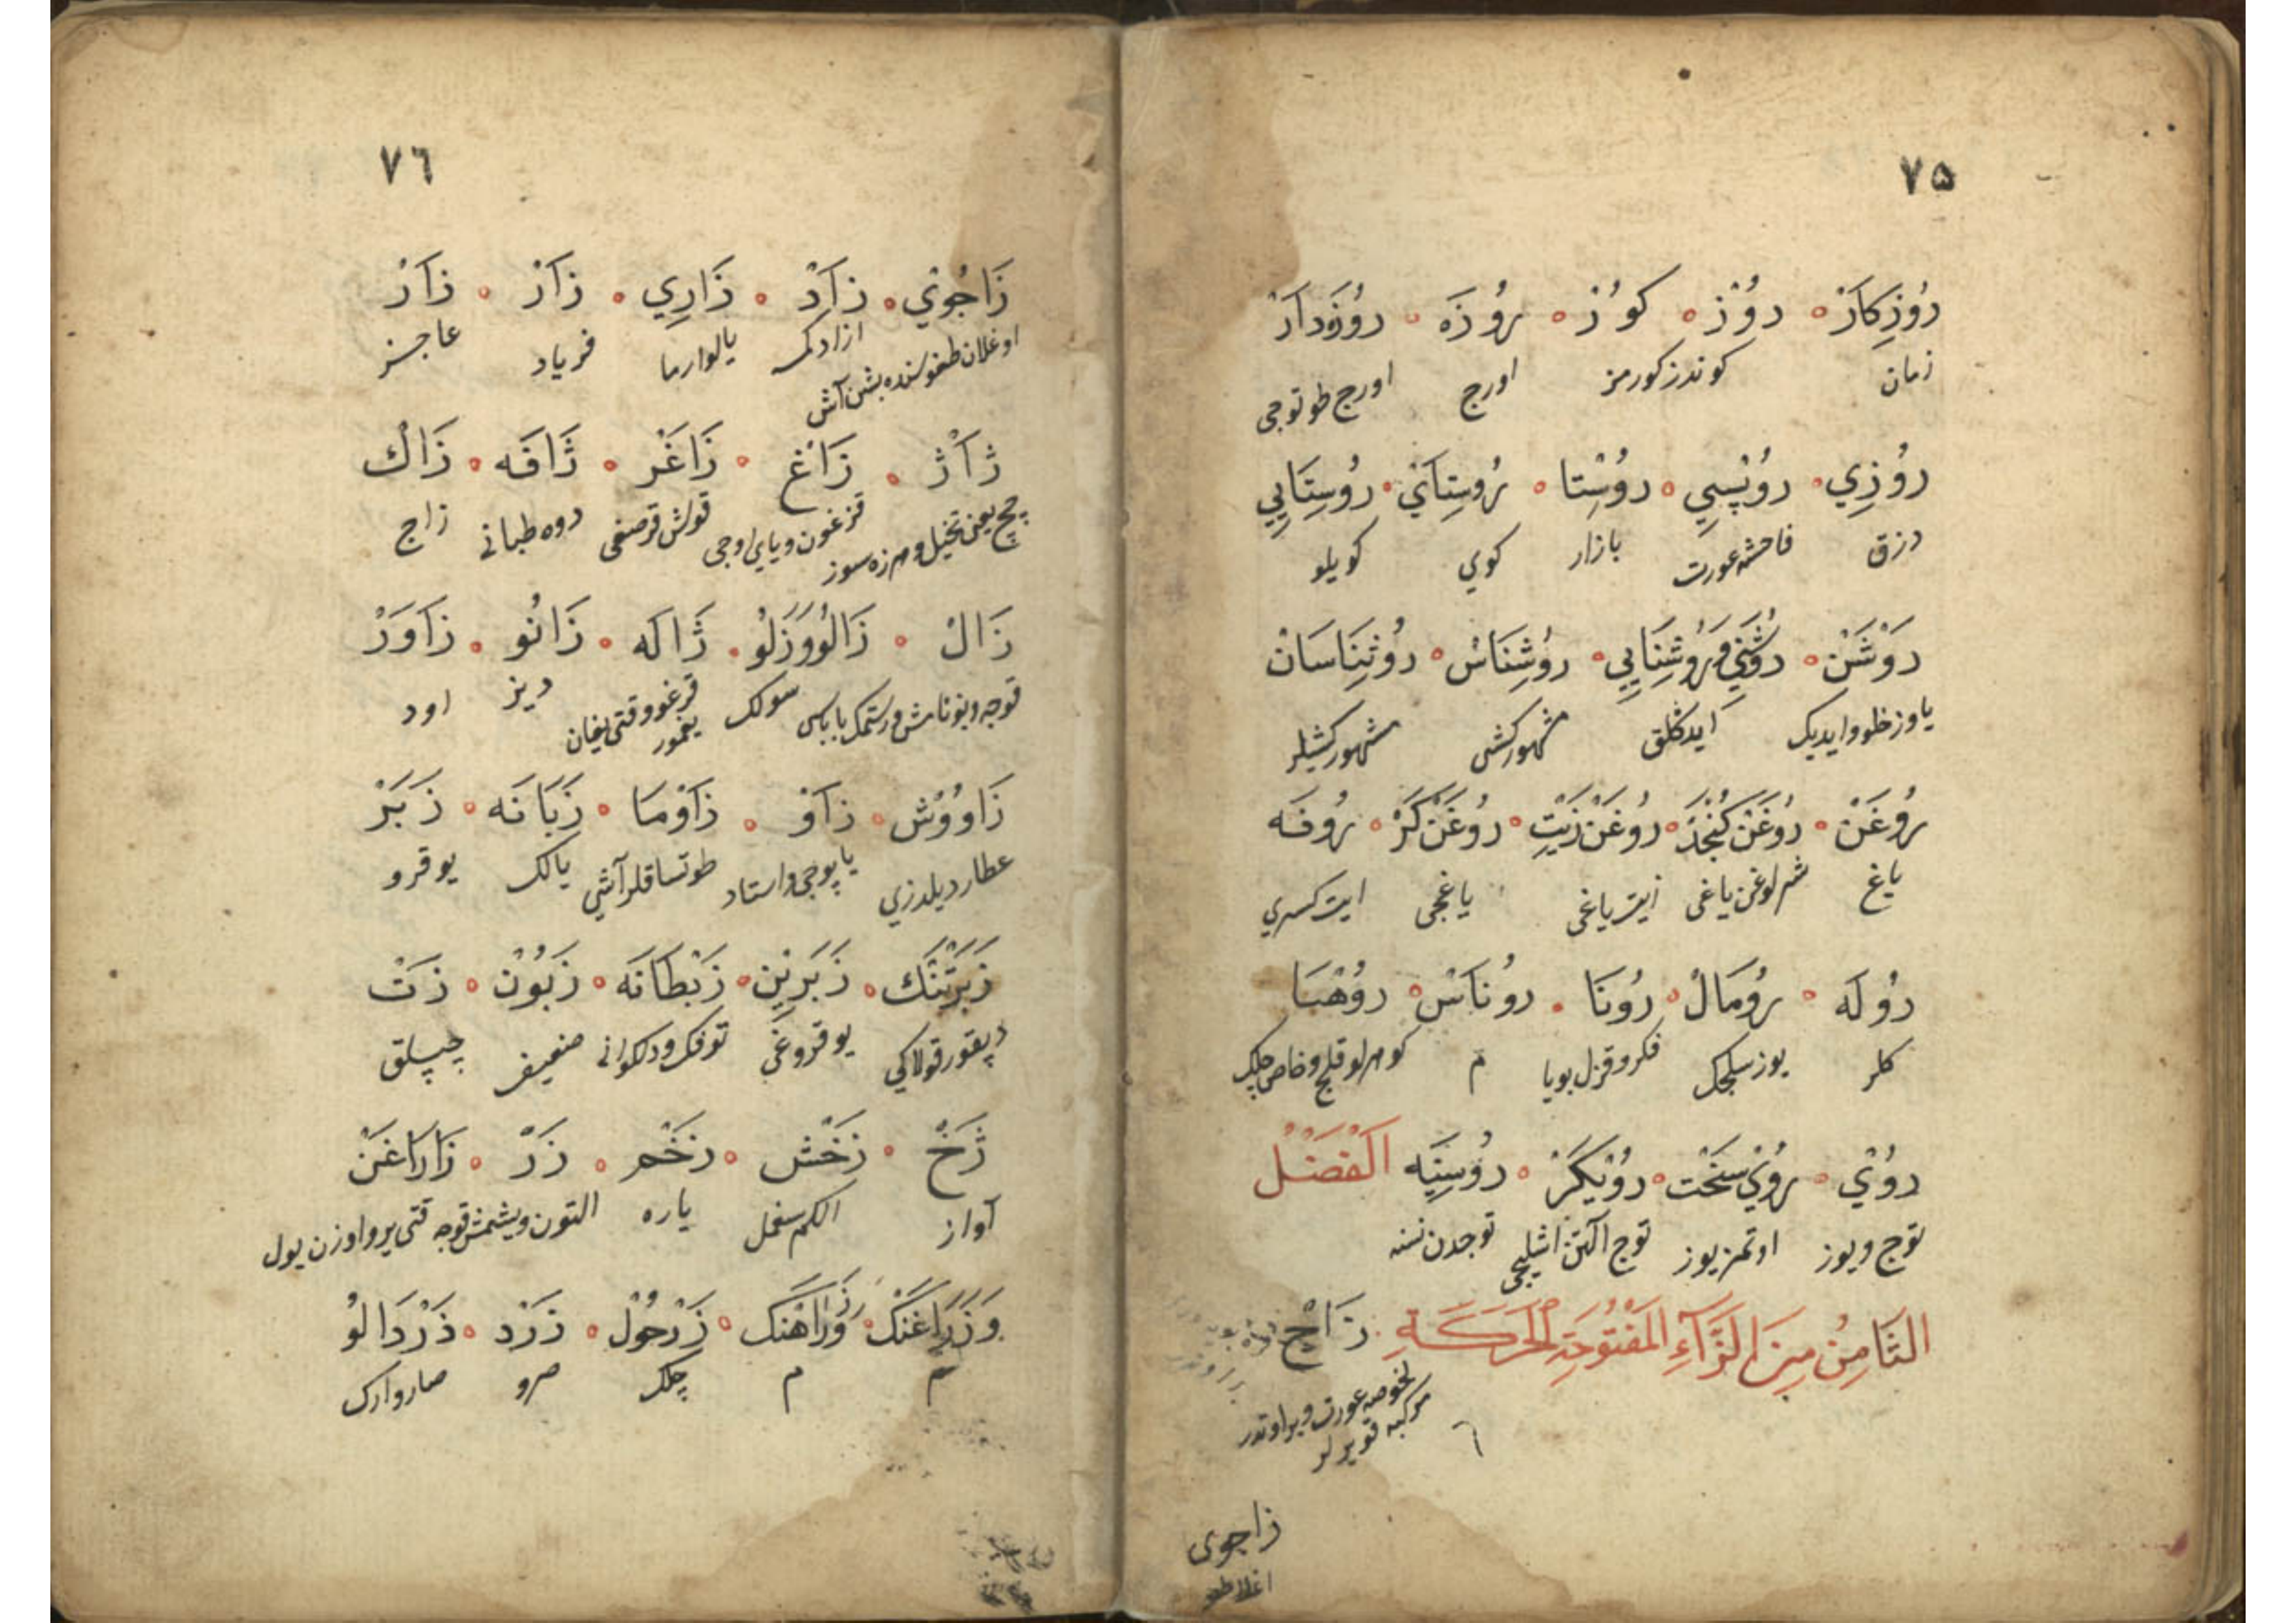 ٧٥
رُوزِكَارْ رُوْز كوُرْ رُوزَه رُوزَه دَارْ
زمان كوندز كورمز اورج اورج طوتوجى
رُوزِي رُوْسْپِي رُوسْتَا رُوسِتَايْ رُوسِتَايِي
رزق فاحشه عورت بازار كوي كويلو
رَوْشَنْ رُوشَنِي وَرُوشِنَايِي رُوشِنَاسْ رُوشِنَاسَانْ
ياوزظلو وايديك ايدكلق مشهوركشى مشهوركشيلر
رُوغَنْ رُوغَنْ كُنْجَدْ رُوغَنْ زَيْتِ رُوغَنْ كَرْ رُوفَه
ياغ شرلوغن ياغى زيت ياغى ياغجى
رُولَه رُومَالْ رُونَا رُونَاسْ رُوهْبَا
كلر يوز سلجك فكر وقزل بويا م كوهرلو قلج وخاص چلك
رُوْيْ رُوْيْ سَخْت رُوْيْكَرْ رُوسِتِيَه اَلْفَصْلُ
توج ويوز اوتمز يوز توج آلتن اشليجى توجدن نسنه
الثَّامِنُ مِنَ الزَّآءِ الْمَفْتُوحَةِ الْحَرَكَةِ زَاجْ
لخوصه عورت وبراوتدر
مركبه قويرلر
زاجوى
٧٦
زَاجُويْ زَادْ زَارِي زَارْ زَارْ
اوغلان طغوسنده بشن آش ازادكمسه يالوارما فرياد عاجز
ژَاژْ زَاغْ زَاغَرْ ژَافَه زَاكْ
قزغون وياي اوجى قوش قرصغى دوه طبانى زاج
زَالْ زَالُوُوَزَلُو ژَالَه زَانُو زَاوَرْ
قوجه وبوناش ورستمك باباسى سولك قرغو وقتى يغان يغمور ديز اود
زَاوُوْش زَاوْ زَاوْمَا زَبَانَه زَبَرْ
عطارد يلدزي ياپوجى واستاد طوتساقلر آشي يالك يوقرو
زَبَرْتَنْك زَبَرِيْن زَبْطَانَه زَبُوْن زَتْ
قولاكى يوقروغى توفك ودلكوانى ضعيف چپلق
ژَخْ زَخْش زَخْم زَرْ زَارَاغَنْ
آواز الكم سغمل ياره التون ويشمش قوجه قتى ير واوزن يول
وَزَرَاغَنْك وَزَرَاهَنْك زَرْحُوْل زَرْد زَرْدَالُو
م م چلك صرو صارو ارك